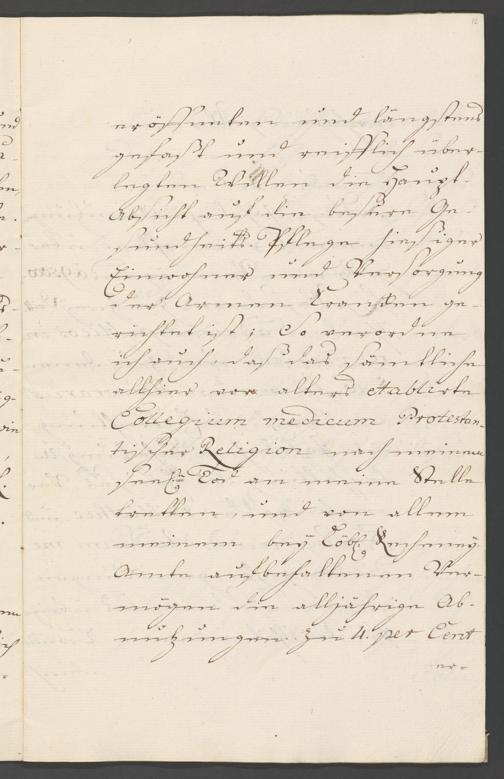 12
eröffneten und längstens
gefaßt und reifflich über-
legten Willen die Haupt-
Absicht auf die bessere Ge-
sundheits Pflege hiesiger
Einwohner und Versorgung
der Armen Krancken ge-
richtet ist; So verordne
ich auch, daß das sämtliche
allhier vor alters etablirte
Collegium medicum Protestan-
tischer Religion nach meinem
seel. Tod an meine Stelle
tretten, und von allem
meinem bey Löbl. Recheney
Amte aufbehaltenen Ver-
mögen die alljährige Ab-
nutzungen zu 4. per Cent
er-